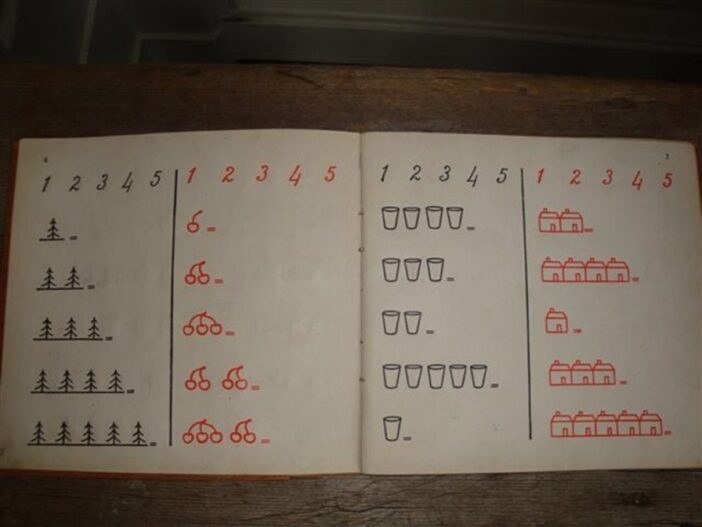 6
1 2 3 4 5
1 2 3 4 5
7
1 2 3 4 5
1 2 3 4 5